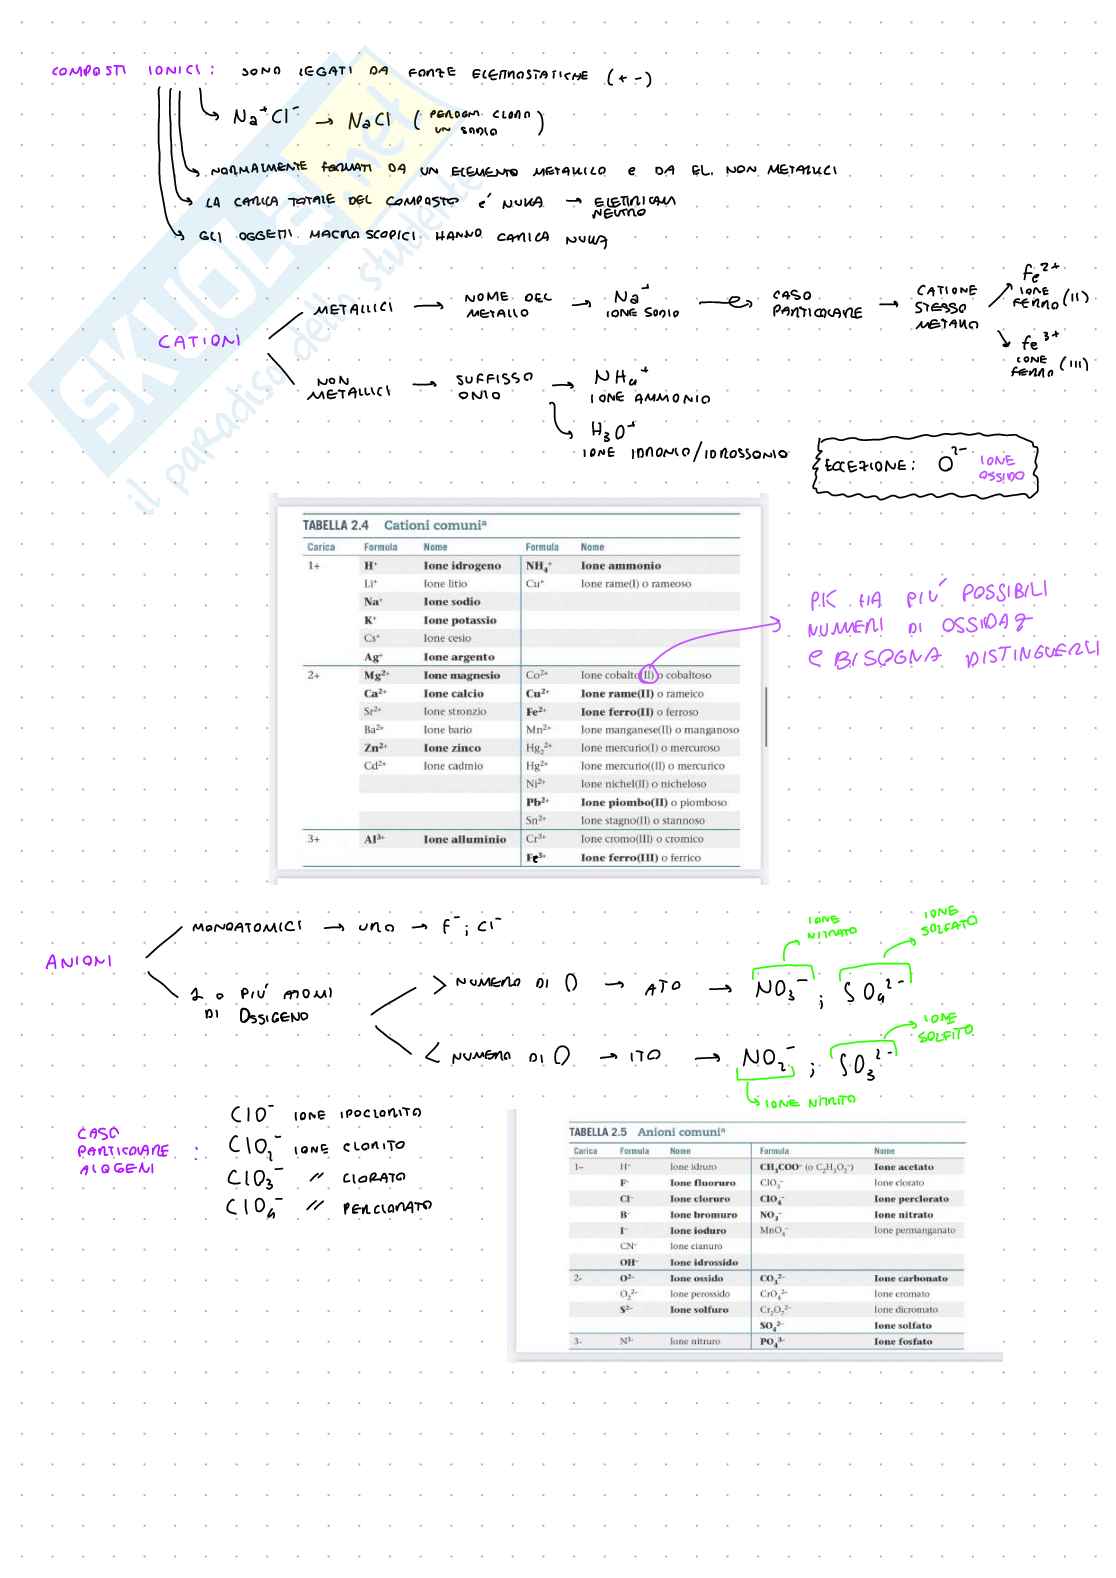 COMPOSTI IONICI: SONO LEGATI DA FORZE ELETTROSTATICHE (+ -)
Na⁺Cl⁻ → NaCl (PER OGNI CLORO UN SODIO)
NORMALMENTE FORMATI DA UN ELEMENTO METALLICO e DA EL. NON METALLICI
LA CARICA TOTALE DEL COMPOSTO E' NULLA → ELETTRICAM NEUTRO
GLI OGGETTI MACROSCOPICI HANNO CARICA NULLA
CATIONI
METALLICI → NOME DEL METALLO → Na⁺ IONE SODIO → CASO PARTICOLARE → CATIONE STESSO METALLO
Fe²⁺ IONE FERRO (II)
Fe³⁺ IONE FERRO (III)
NON METALLICI → SUFFISSO ONIO → NH₄⁺ IONE AMMONIO
H₃O⁺ IONE IDRONIO/IDROSSONIO
ECCEZIONE: O²⁻ IONE OSSIDO
TABELLA 2.4 Cationi comuniᵃ
Carica Formula Nome Formula Nome
1+ H⁺ Ione idrogeno NH₄⁺ Ione ammonio
Li⁺ Ione litio Cu⁺ Ione rame(I) o rameoso
Na⁺ Ione sodio
K⁺ Ione potassio
Cs⁺ Ione cesio
Ag⁺ Ione argento
2+ Mg²⁺ Ione magnesio Co²⁺ Ione cobalto(II) o cobaltoso
Ca²⁺ Ione calcio Cu²⁺ Ione rame(II) o rameico
Sr²⁺ Ione stronzio Fe²⁺ Ione ferro(II) o ferroso
Ba²⁺ Ione bario Mn²⁺ Ione manganese(II) o manganoso
Zn²⁺ Ione zinco Hg₂²⁺ Ione mercurio(I) o mercuroso
Cd²⁺ Ione cadmio Hg²⁺ Ione mercurio((II) o mercurico
Ni²⁺ Ione nichel(II) o nicheloso
Pb²⁺ Ione piombo(II) o piomboso
Sn²⁺ Ione stagno(II) o stannoso
3+ Al³⁺ Ione alluminio Cr³⁺ Ione cromo(III) o cromico
Fe³⁺ Ione ferro(III) o ferrico
PK HA PIU' POSSIBILI
NUMERI DI OSSIDAZ
e BISOGNA DISTINGUERLI
ANIONI
MONOATOMICI → UNO → F⁻; Cl⁻
2 o PIU' ATOMI DI OSSIGENO
> NUMERO DI O → ATO → NO₃⁻ ; SO₄²⁻
IONE NITRATO
IONE SOLFATO
< NUMERO DI O → ITO → NO₂⁻ ; SO₃²⁻
IONE SOLFITO
IONE NITRITO
CASO PARTICOLARE ALOGENI :
ClO⁻ IONE IPOCLORITO
ClO₂⁻ IONE CLORITO
ClO₃⁻ // CLORATO
ClO₄⁻ // PERCLORATO
TABELLA 2.5 Anioni comuniᵃ
Carica Formula Nome Formula Nome
1– H⁻ Ione idruro CH₃COO⁻ (o C₂H₃O₂⁻) Ione acetato
F⁻ Ione fluoruro ClO₃⁻ Ione clorato
Cl⁻ Ione cloruro ClO₄⁻ Ione perclorato
B⁻ Ione bromuro NO₃⁻ Ione nitrato
I⁻ Ione ioduro MnO₄⁻ Ione permanganato
CN⁻ Ione cianuro
OH⁻ Ione idrossido
2- O²⁻ Ione ossido CO₃²⁻ Ione carbonato
O₂²⁻ Ione perossido CrO₄²⁻ Ione cromato
S²⁻ Ione solfuro Cr₂O₇²⁻ Ione dicromato
SO₄²⁻ Ione solfato
3- N³⁻ Ione nitruro PO₄³⁻ Ione fosfato
SKUOLA.net
il paradiso dello studente